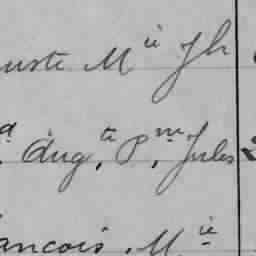 uste M ie Jh
a. Aug. te P. re Jules
ancois. M ie